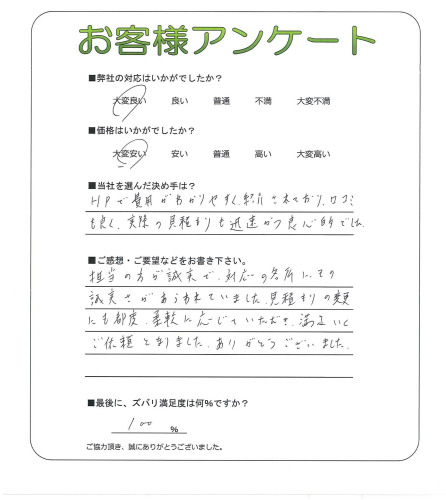 お客様アンケート
■弊社の対応はいかがでしたか?
大変良い 良い 普通 不満 大変不満
■価格はいかがでしたか?
大変安い 安い 普通 高い 大変高い
■当社を選んだ決め手は?
HPで費用がわかりやすく、紹介されており、口コミ
も良く、実際の見積もりも迅速かつ良心的でした。
■ご感想・ご要望などをお書き下さい。
担当の方が誠実で、対応の各所にその
誠実さがあらわれていました。見積もりの変更
にも都度、柔軟に応じていただき、満足いく
ご依頼となりました。ありがとうございました。
■最後に、ズバリ満足度は何%ですか?
100 %
ご協力頂き、誠にありがとうございました。